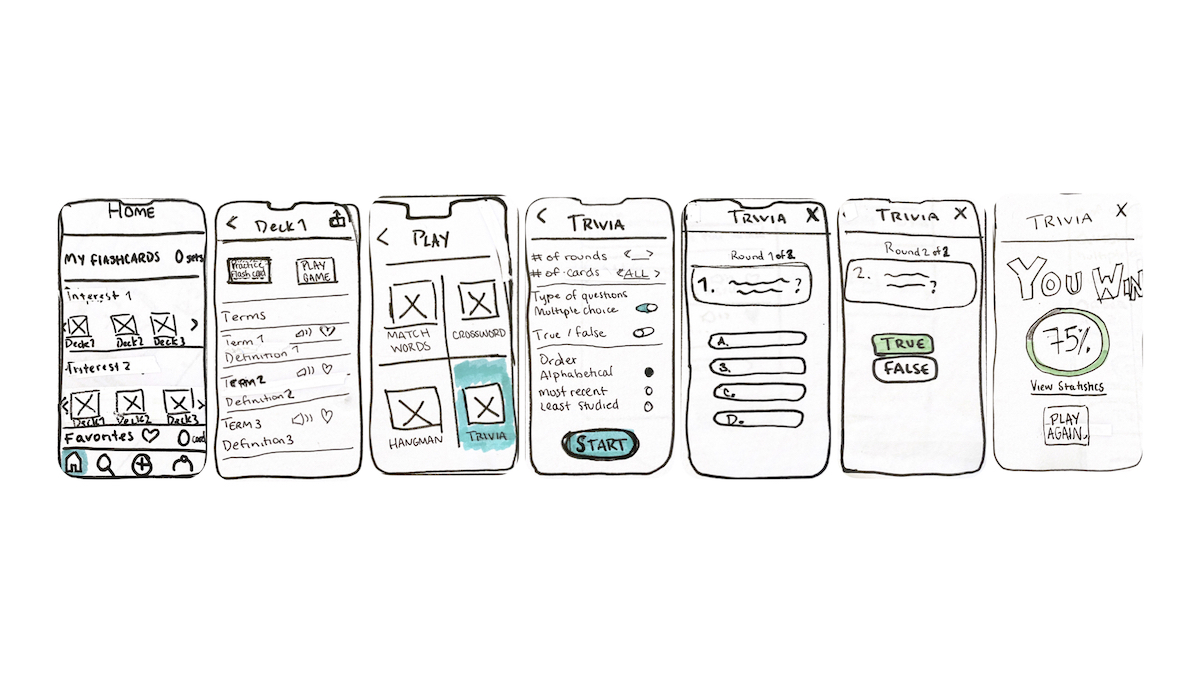 HOME
MY FLASHCARDS 0 sets
Interest 1
Deck1 Deck2 Deck3
Interest 2
Deck1 Deck2 Deck3
Favorites 0 card
< Deck 1
Practice flash card
PLAY GAME
Terms
Term 1
Definition 1
TERM 2
Definition 2
TERM 3
Definition 3
< PLAY
MATCH WORDS
CROSSWORD
HANGMAN
TRIVIA
< TRIVIA
# of rounds < >
# of cards <ALL>
Type of questions
Multiple choice
True / false
Order
Alphabetical
most recent
Least studied
START
TRIVIA X
Round 1 of 2
1. ?
A.
B.
C.
D.
TRIVIA X
Round 2 of 2
2. ?
TRUE
FALSE
TRIVIA X
YOU WIN
75%
View Statistics
PLAY
AGAIN